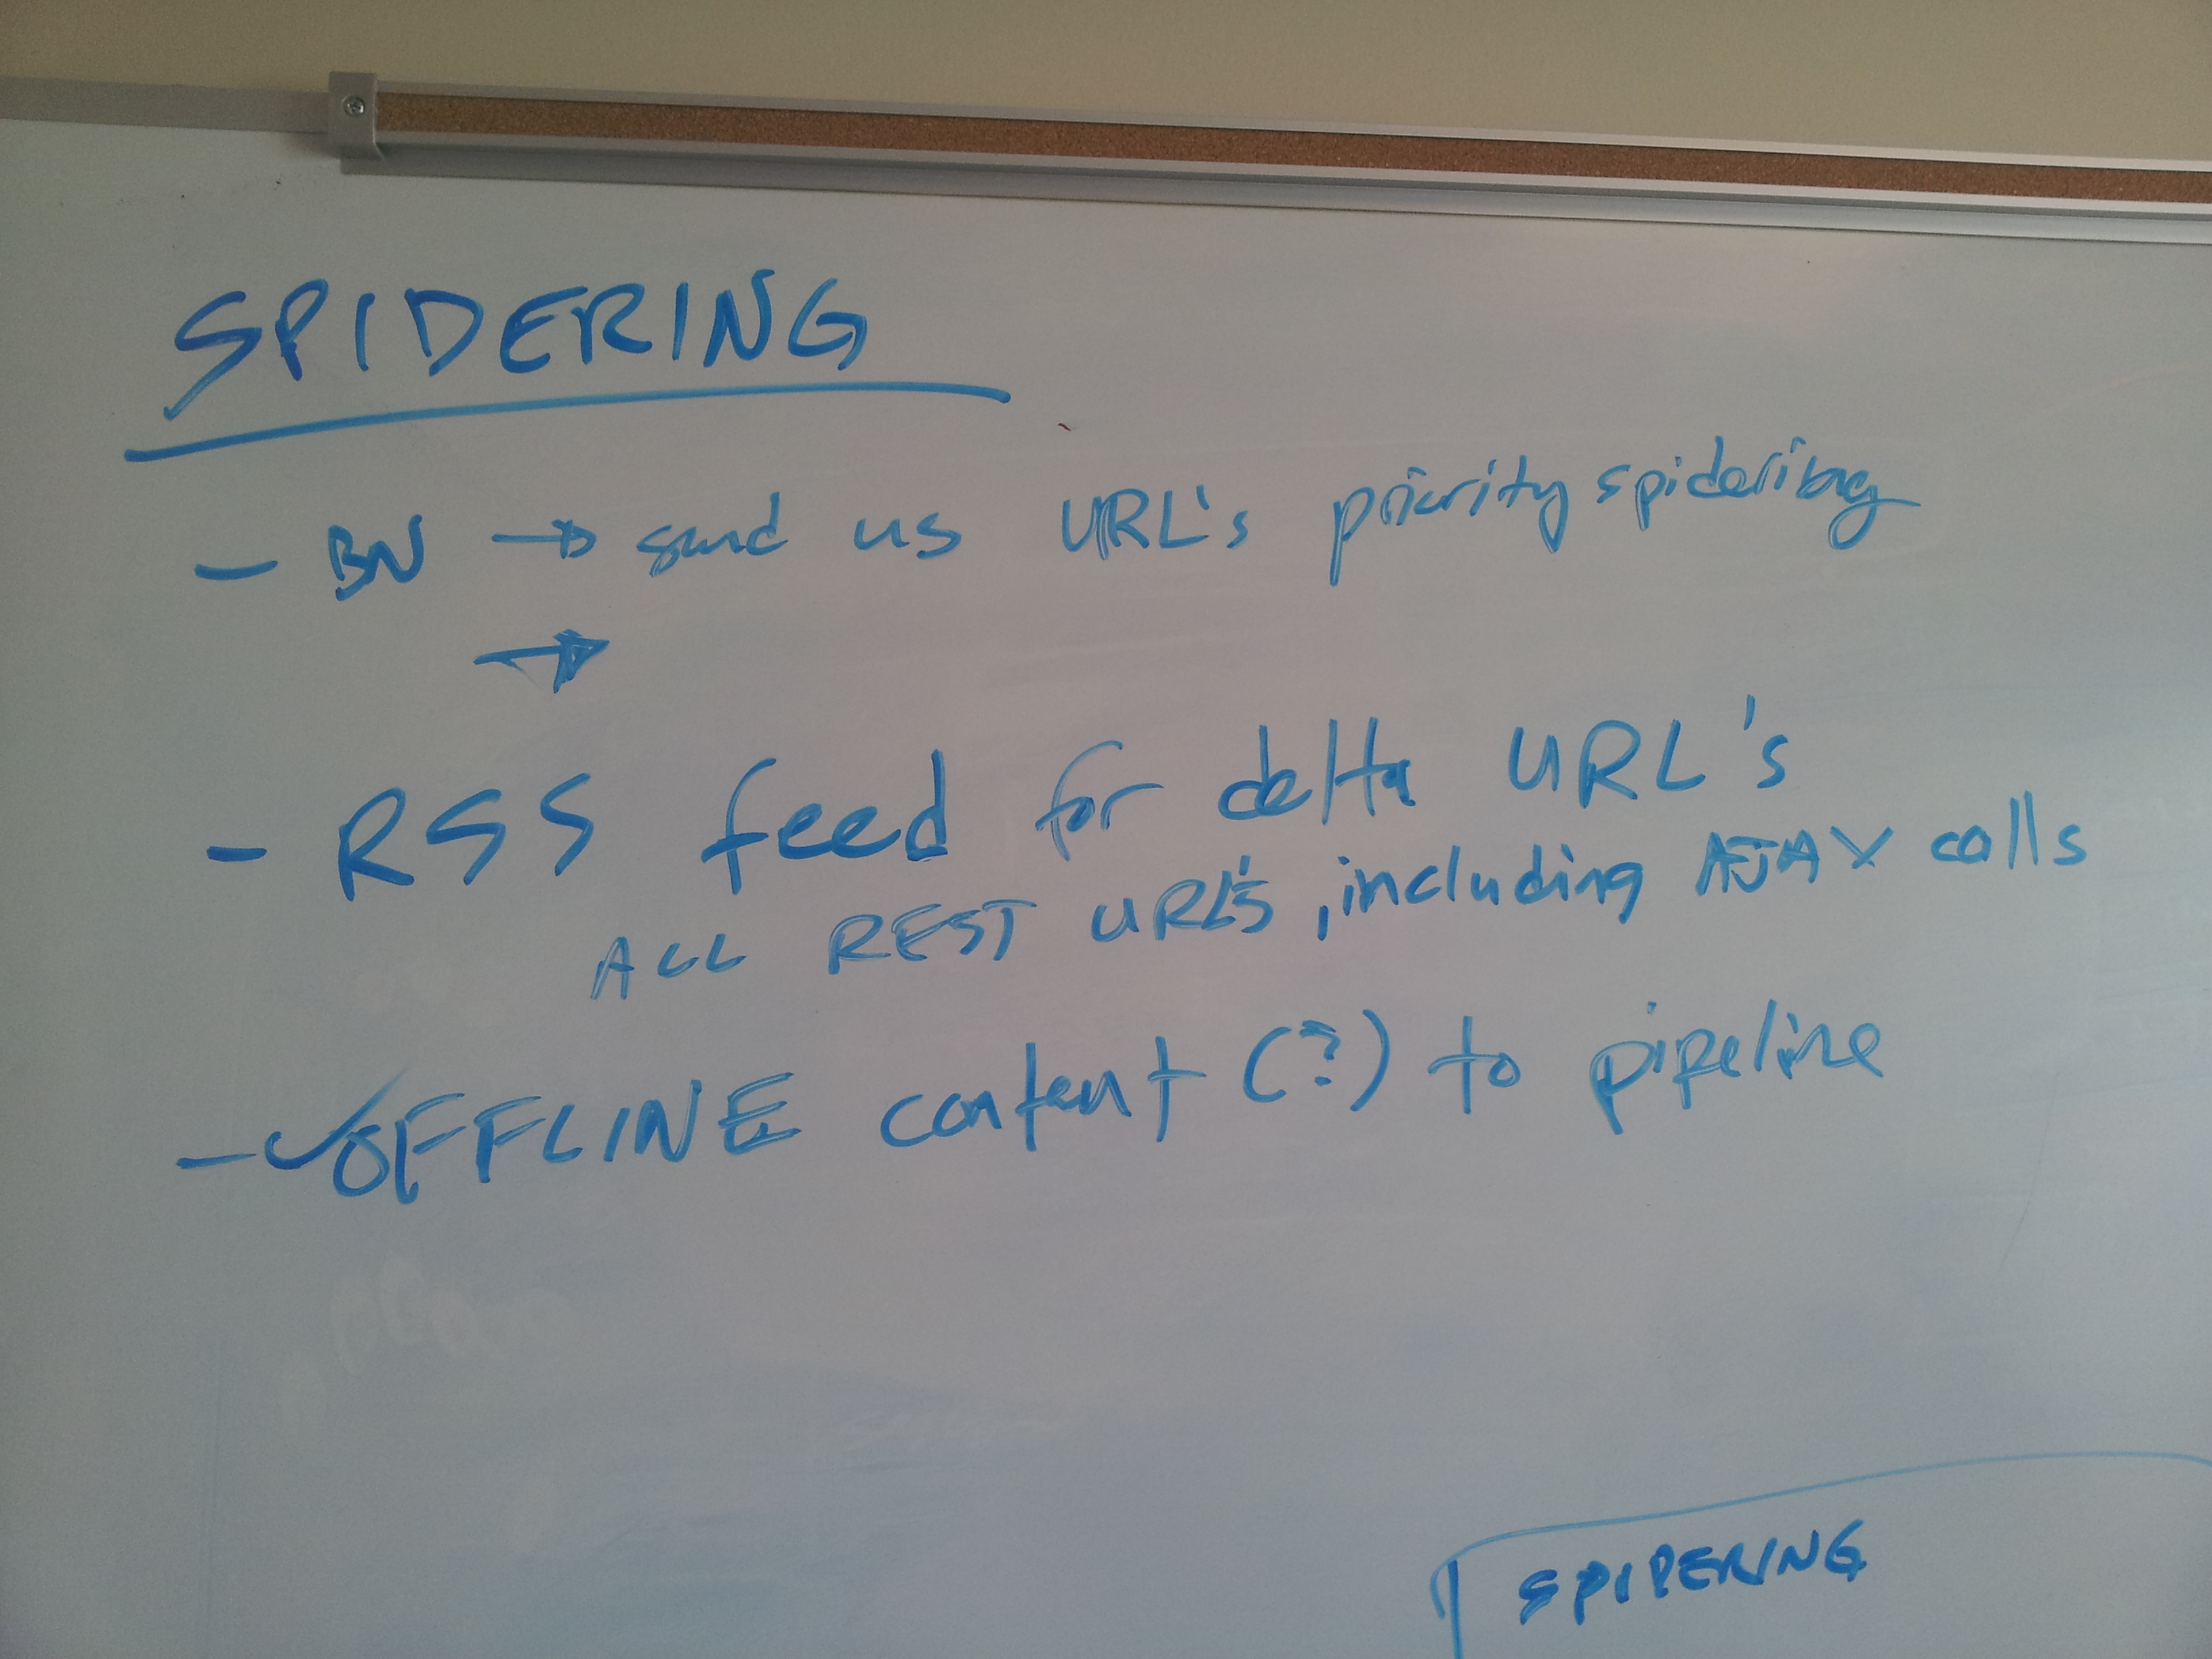 SPIDERING
- BN → send us URL's priority spidering
→
- RSS feed for delta URL's
ALL REST URL'S, including AJAX calls
- ✓ OFFLINE content (?) to pipeline
SPIDERING